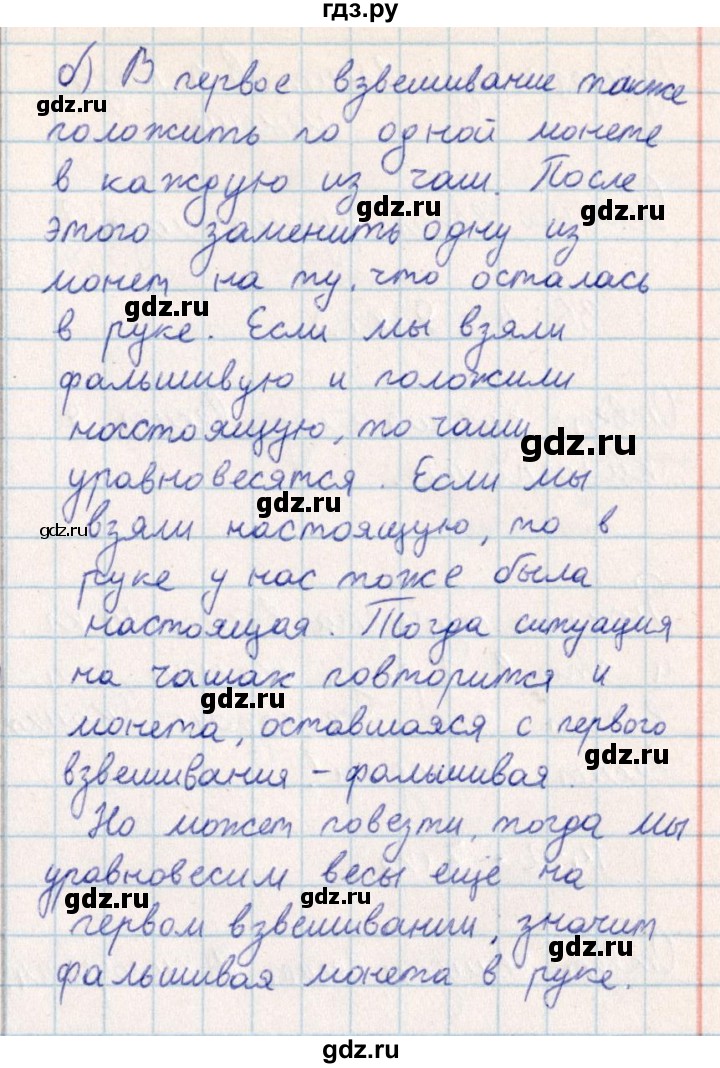 гдз.ру
б) В первое взвешивание также
положить по одной монете
в каждую из чаш. После
gdz.ru
gdz.ru
этого заменить одну из
монет на ту, что осталась
gdz.ru
в руке. Если мы взяли
фальшивую и положили
настоящую, то чаши
gdz.ru
уравновесятся. Если мы
gdz.ru
gdz.ru
взяли настоящую, то в
руке у нас тоже была
настоящая. Тогда ситуация
на чашах повторится и
gdz.ru
монета, оставшаяся с первого
gdz.ru
взвешивания – фальшивая.
Но может повезти, тогда мы
уравновесим весы ещё на
gdz.ru
gdz.ru
первом взвешивании, значит
gdz.ru
фальшивая монета в руке.
gdz.ru